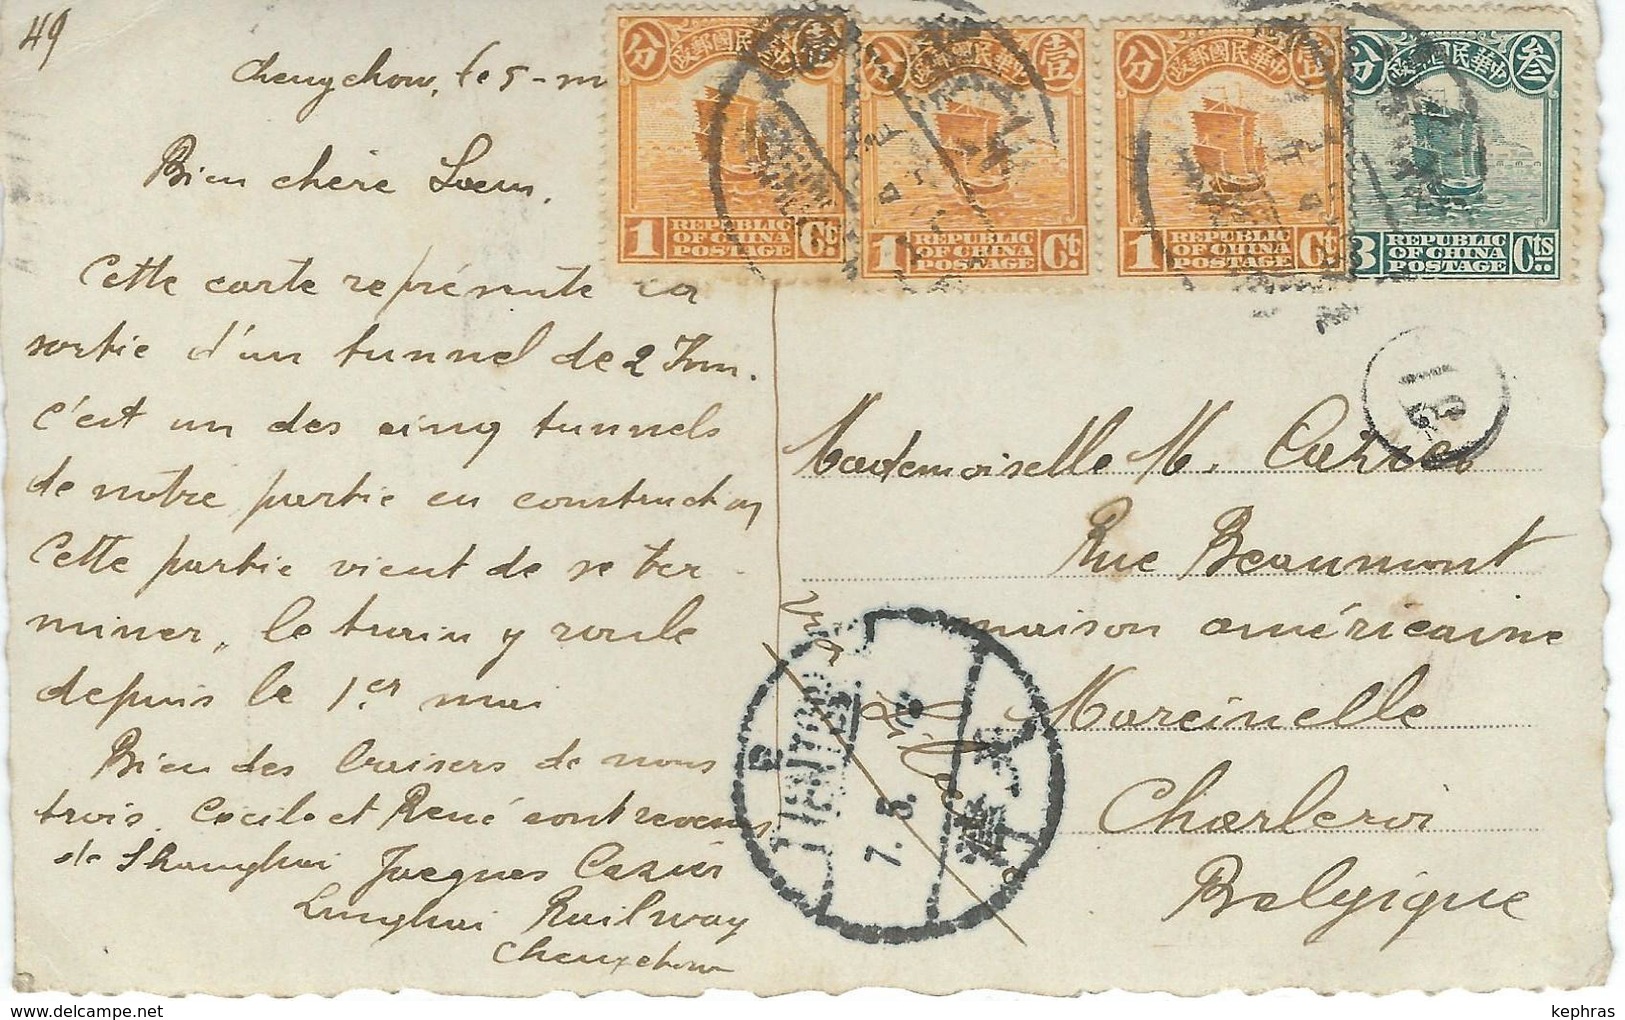 49
Chengchow, le 5-m
Bien chère Soeur,
Cette carte représente la
sortie d'un tunnel de 2 Km.
C'est un des cinq tunnels
de notre partie en construction
Cette partie vient de se ter-
miner, le train y roule
depuis le 1er mai
Bien des baisers de nous
trois. Cécile et René sont revenus
de Shanghai Jacques Cazier
Lunghai Railway
Chengchow
分 中華民國郵政 壹
1 REPUBLIC OF CHINA POSTAGE Ct.
分 中華民國郵政 壹
1 REPUBLIC OF CHINA POSTAGE Ct.
分 中華民國郵政 壹
1 REPUBLIC OF CHINA POSTAGE Ct.
分 中華民國郵政 叁
3 REPUBLIC OF CHINA POSTAGE Cts.
Mademoiselle M. Cazier
Rue Beaumont
maison américaine
Marcinelle
Charleroi
Belgique
Via
TIENTSIN
7. 5.
kephras